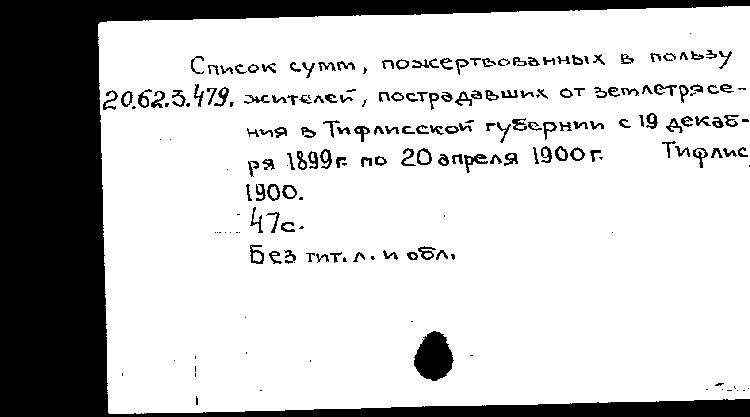 Список сумм, пожертвованных в пользу
20.62.3.479. жителей, пострадавших от землетрясе-
ния в Тифлисской губернии с 19 декаб-
ря 1899г. по 20 апреля 1900г. Тифлис,
1900.
47с.
Без тит. л. и обл.